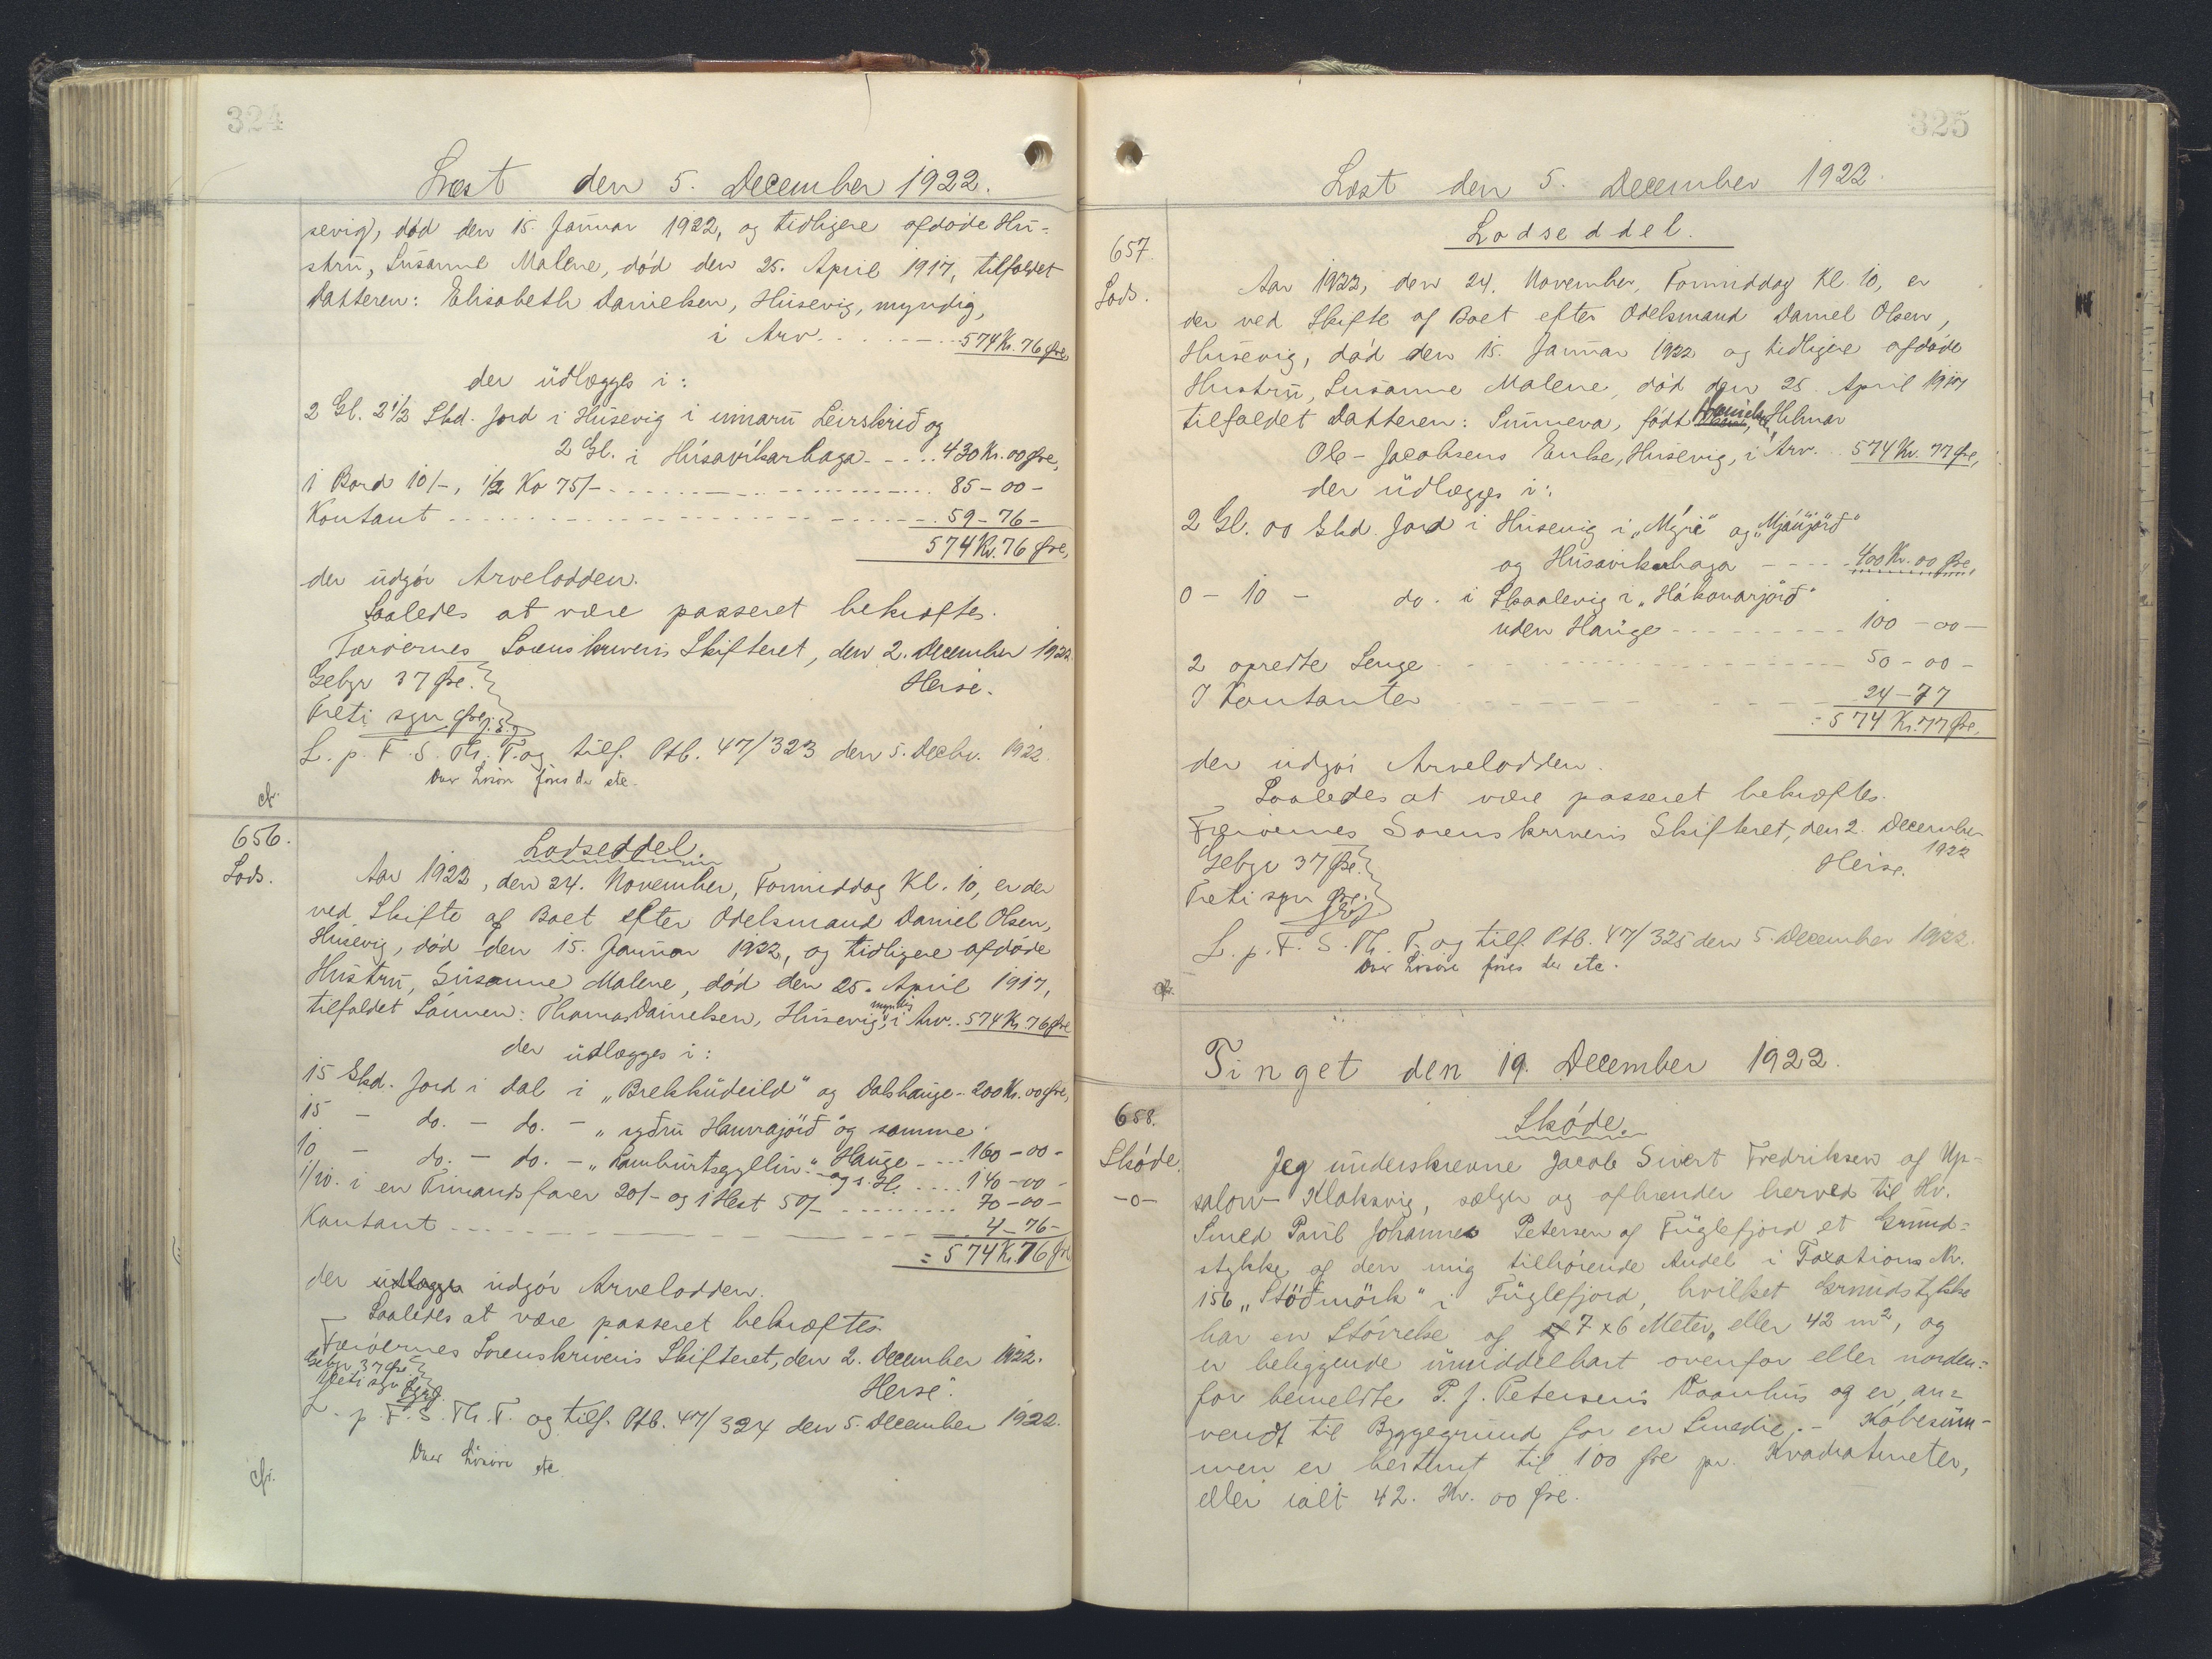 324
Læst den 5. December 1922.
sevig, død den 15. Januar 1922, og tidligere afdøde Hu-
stru, Susanne Malene, død den 25. April 1917, tilfaldet
Datteren: Elisabeth Danielsen, Husevig, myndig,
i Arv. . . . . 574 Kr. 76 Øre
der udlægges i:
2 Gl. 2 1/2 Skd. Jord i Husevig i innaru Leirskrið og
2 Gl. i Húsavíkarhaga - - . . 430 Kr. 00 Øre,
1 Bord 10/-, 1/2 Ko 75/- . . . . 85 - 00 -
Kontant - - - - 59 - 76 -
574 Kr. 76 Øre,
der udgør Arvelodden.
Saaledes at være passeret bekræftes.
Færøernes Sorenskriveris Skifteret, den 2. December 1922
Gebyr 37 Øre.
Herse.
Treti syv Øre
L. p. F. S. Th. T. og tilf. Ptb. 47/323 den 5. Decbr. 1922.
Over Løsøre føres der etc.
cfr.
656.
Lods.
Lodseddel.
Aar 1922, den 24. November, Formiddag Kl. 10, er der
ved Skifte af Boet efter Odelsmand Daniel Olsen,
Husevig, død den 15. Januar 1922, og tidligere afdøde
Hustru, Susanne Malene, død den 25. April 1917,
myndig
tilfaldet Sønnen: Thomas Danielsen, Husevig, i Arv. . 574 Kr. 76 Øre
der udlægges i:
15 Skd. Jord i Dal i „Brekkudeild" og Dalshauge - 200 Kr. 00 Øre,
15 - do. - do. - „syðru Hamrajörð" og samme
Hauge - - . . 160 - 00 -
10 - do. - do. - „Kamburtsgyllin" og s. H. . . . . 140 - 00 -
1/10. i en Trimandsfarer 20/- og 1 Hest 50/- . . . . 70 - 00 -
Kontant - - - - 4 - 76 -
= 574 Kr. 76 Øre
der udlægges udgør Arvelodden.
Saaledes at være passeret bekræftes.
Færøernes Sorenskriveris Skifteret, den 2. December 1922.
Gebyr 37 Øre
Treti syv Øre
Herse.
L. p. F. S. Th. T. og tilf. Ptb. 47/324 den 5. December 1922.
Over Løsøre etc
cfr.
325
Læst den 5. December 1922.
657.
Lods.
Lodseddel.
Aar 1922, den 24. November, Formiddag Kl. 10, er
der ved Skifte af Boet efter Odelsmand Daniel Olsen,
Husevig, død den 15. Januar 1922 og tidligere afdøde
Hustru, Susanne Malene, død den 25. April 1917
tilfaldet Datteren: Sunneva, født Danielsen, Hilmar
Ole - Jacobsens Enke, Husevig, i Arv. . 574 Kr. 77 Øre,
der udlægges i:
2 Gl. 00 Skd. Jord i Husevig i „Mýrie" og „Mjáujörð"
og Húsavíkarhaga - - - 400 Kr. 00 Øre,
0 - 10 - do. i Skaalevig i „Hákonarjörð"
uden Hauge - - - - 100 - 00 -
2 opredte Senge - - - - 50 - 00 -
I Kontanter - - - - 24 - 77
= 574 Kr. 77 Øre,
der udgør Arvelodden.
Saaledes at være passeret bekræftes.
Færøernes Sorenskriveris Skifteret, den 2. December
1922
Gebyr 37 Øre.
Herse.
Treti syv Øre.
L. p. F. S. Th. T. og tilf. Ptb. 47/325 den 5. December 1922.
Over Løsøre føres der etc.
cfr.
Tinget den 19. December 1922.
658.
Skøde.
-o-
Skøde.
Jeg underskrevne Jacob Sivert Fredriksen af Up-
salow Klaksvig, sælger og afhænder herved til Hr.
Smed Poul Johannes Petersen af Fuglefjord et Grund-
stykke af den mig tilhørende Andel i Taxations Nr.
156 „Støðmörk" i Fuglefjord, hvilket Grundstykke
har en Størrelse af 7 x 6 Meter, eller 42 m², og
er beliggende umiddelbart ovenfor eller norden-
for bemeldte P. J. Petersens Vaanhus og er an-
vendt til Byggegrund for en Smedie. - Købesum-
men er bestemt til 100 Øre pr. Kvadratmeter,
eller ialt 42. Kr. 00 Øre.